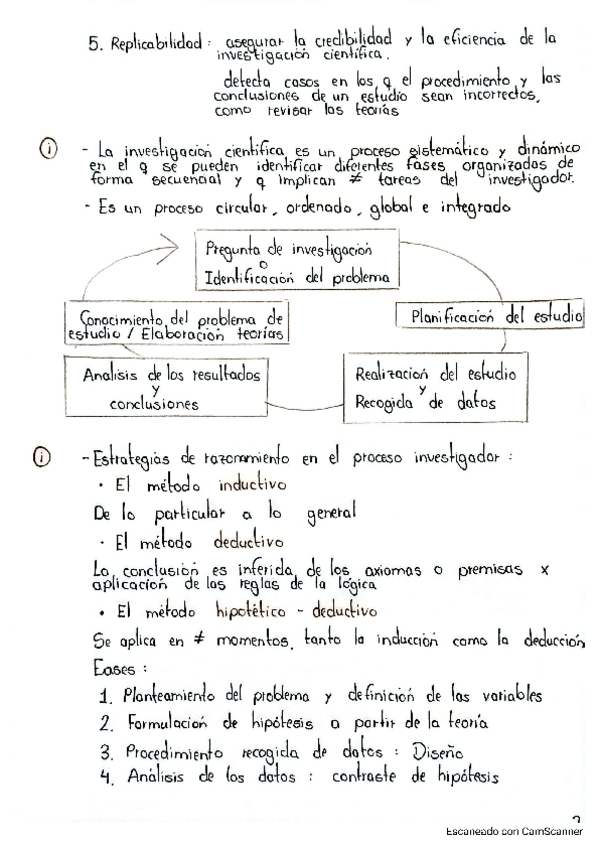 5. Replicabilidad : asegurar la credibilidad y la eficiencia de la
investigación científica.
detecta casos en los q el procedimiento y las
conclusiones de un estudio sean incorrectos,
como revisar las teorías
i - La investigación científica es un proceso sistemático y dinámico
en el q se pueden identificar diferentes fases organizadas de
forma secuencial y q implican ≠ tareas del investigador.
- Es un proceso circular, ordenado, global e integrado
Pregunta de investigación
o
Identificación del problema
Conocimiento del problema de
estudio / Elaboración teorías
Planificación del estudio
Analisis de los resultados
y
conclusiones
Realización del estudio
y
Recogida de datos
i - Estrategias de razonamiento en el proceso investigador :
• El método inductivo
De lo particular a lo general
• El método deductivo
La conclusión es inferida de los axiomas o premisas x
aplicación de las reglas de la lógica
• El método hipotético - deductivo
Se aplica en ≠ momentos, tanto la inducción como la deducción
Fases :
1. Planteamiento del problema y definición de las variables
2. Formulación de hipótesis a partir de la teoría
3. Procedimiento recogida de datos : Diseño
4. Análisis de los datos : contraste de hipótesis
Escaneado con CamScanner